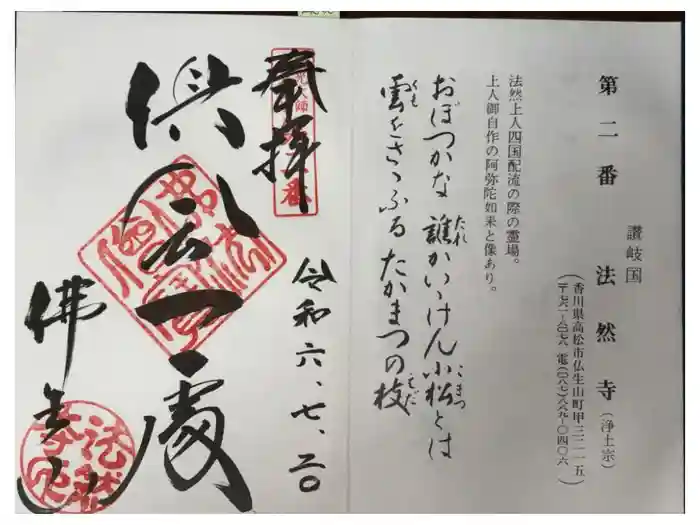 讃岐国
第二番 法然寺(浄土宗)
(香川県高松市仏生山町甲三二一五
〒七六一−八〇七八 電(〇八七)八八九−〇四〇六)
法然上人四国配流の際の霊場。
上人御自作の阿弥陀如来と像あり。
おぼつかな 誰かいいけん 小松とは
たれ
こまつ
雲をさゝふる たかまつの枝
くも
えだ
奉拝
令和六、七、二〇
倶会一處
佛生山